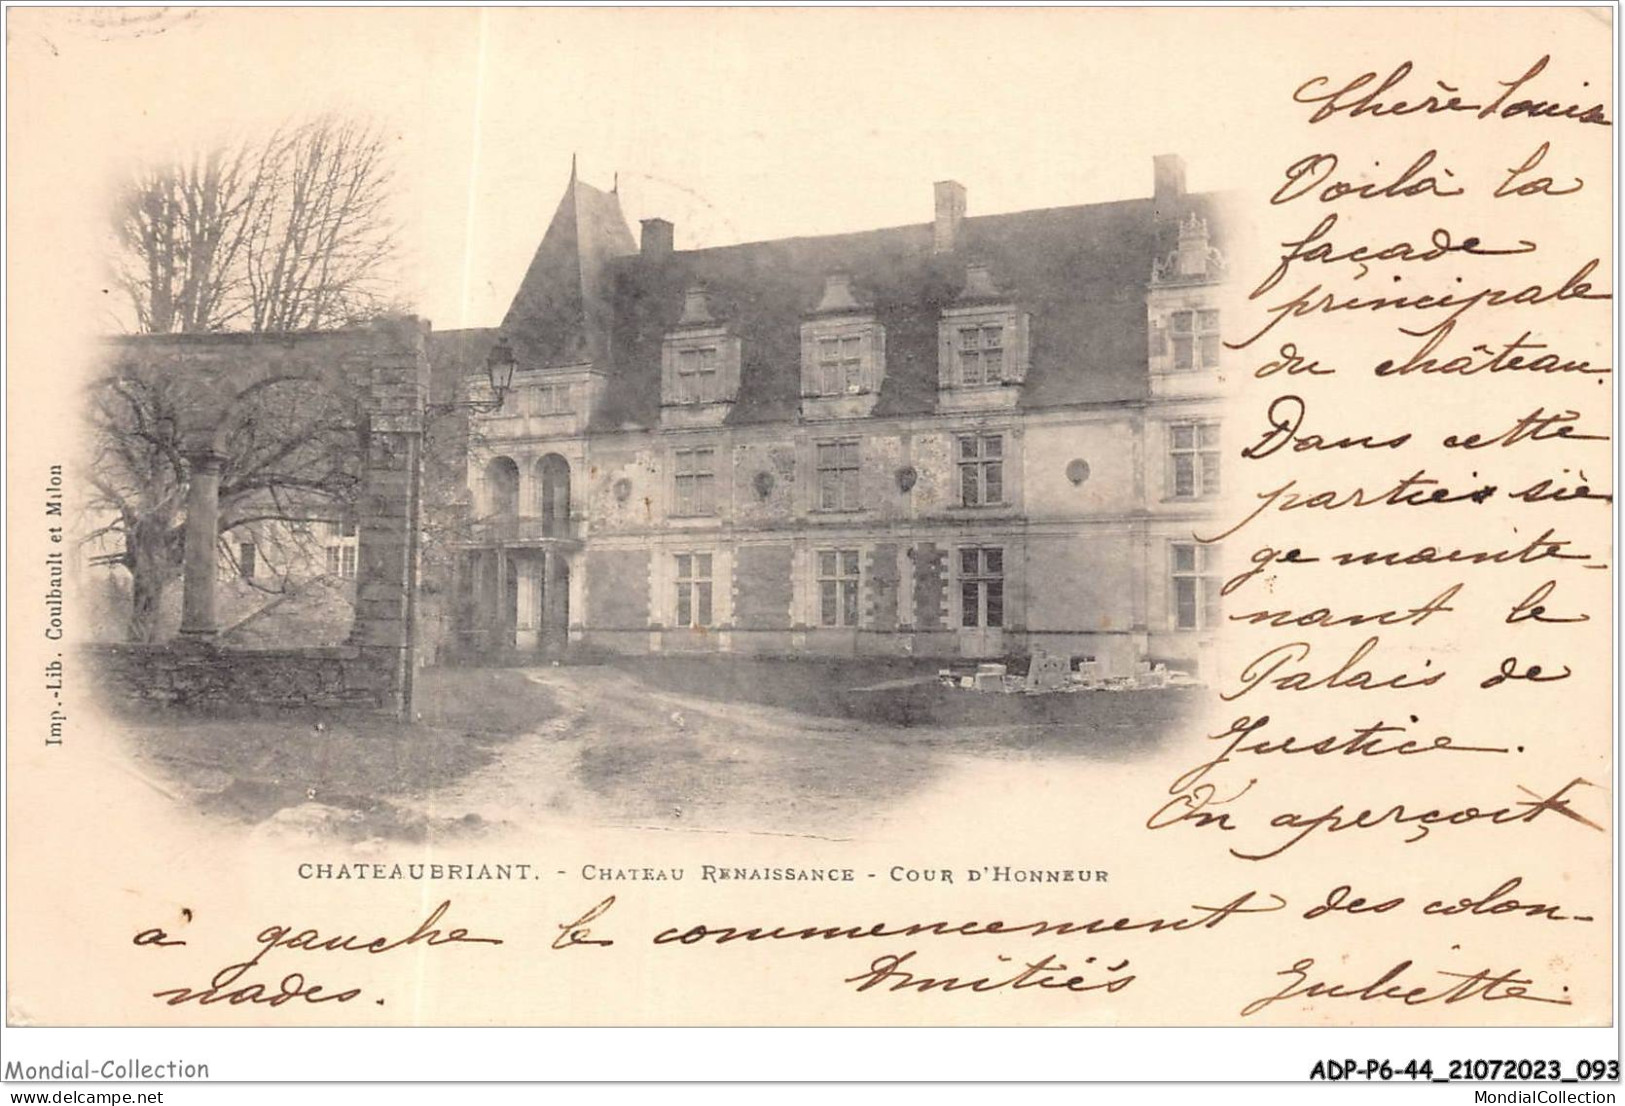 Chère Louise
Voilà la
façade
principale
du château.
Dans cette
partie siè
ge mainte-
nant le
Palais de
Justice.
On aperçoit
à gauche le commencement des colon-
nades.
Amitiés Juliette.
CHATEAUBRIANT. - CHATEAU RENAISSANCE - COUR D'HONNEUR
Imp.-Lib. Coulbault et Milon
Mondial-Collection
ADP-P6-44_21072023_093
delcampe.net
MondialCollection